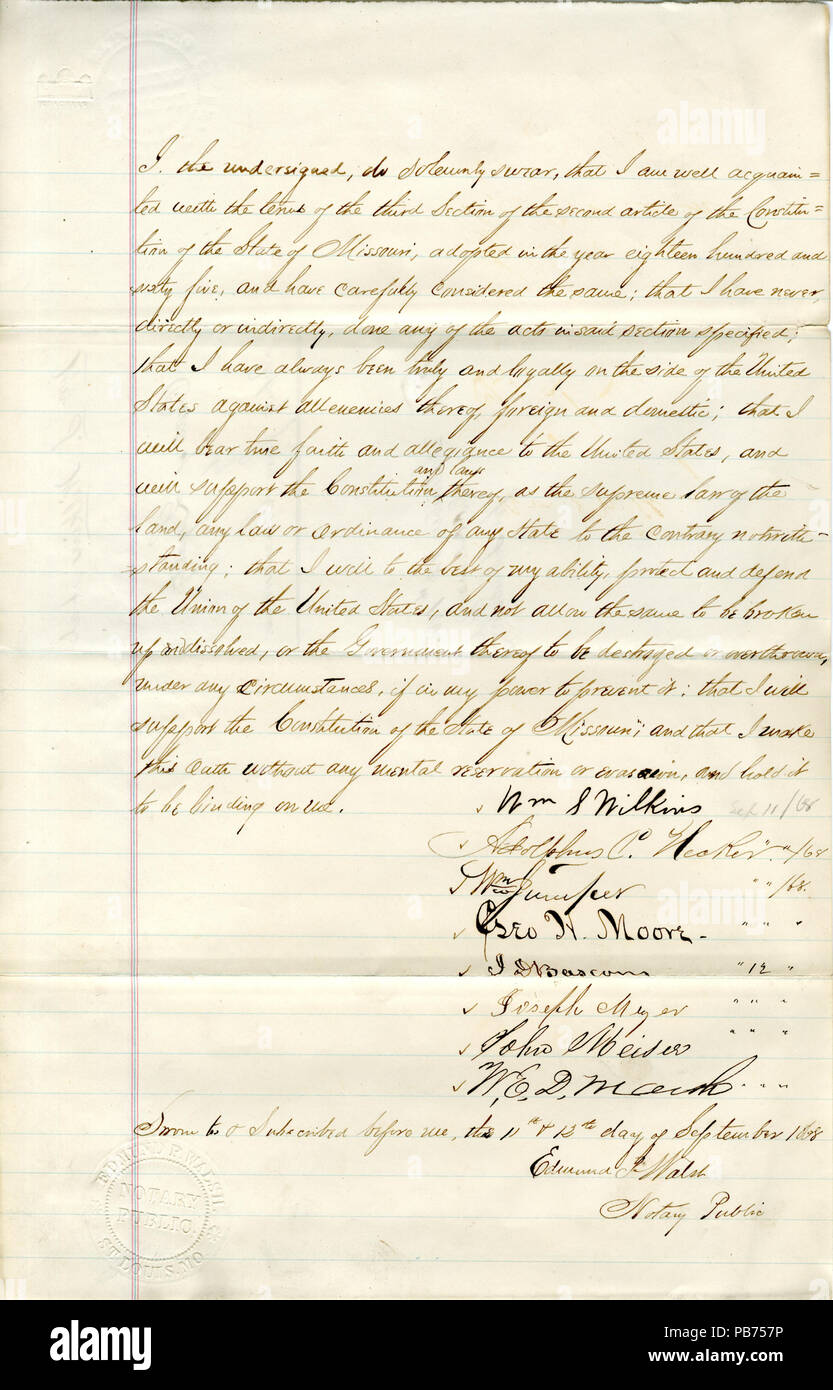 I. the undersigned, do solemnly swear, that I am well acquain=
ted with the terms of the third Section of the second article of the Constitu=
tion of the State of Missouri, adopted in the year eighteen hundred and
sixty five, and have carefully considered the same; that I have never,
directly or indirectly, done any of the acts in said section specified;
that I have always been truly and loyally on the side of the United
States against all enemies thereof, foreign and domestic; that I
will bear true faith and allegiance to the United States, and
and laws
will support the Constitution thereof, as the supreme law of the
land, any law or ordinance of any State to the contrary notwith-
standing; that I will to the best of my ability, protect and defend
the Union of the United States, and not allow the same to be broken
up and dissolved, or the Government thereof to be destroyed or overthrown,
under any circumstances, if in my power to prevent it; that I will
support the Constitution of the State of Missouri; and that I make
this oath without any mental reservation or evasion, and hold it
to be binding on me.
Wm S Wilkins Sep 11/68
Adolphus P. " "/68
Wm Jumper " "/68.
Geo H. Moore - " " "
J D Bascom " 12 "
Joseph Meyer " " "
John Meiser " " "
W. E. D. " " "
Sworn to & Subscribed before me, this 11th & 12th day of September 1868
Edmund P. Walsh
Notary Public
EDMUND P. WALSH.
NOTARY
PUBLIC.
ST LOUIS. MO
alamy
Image ID: PB757P
www.alamy.com